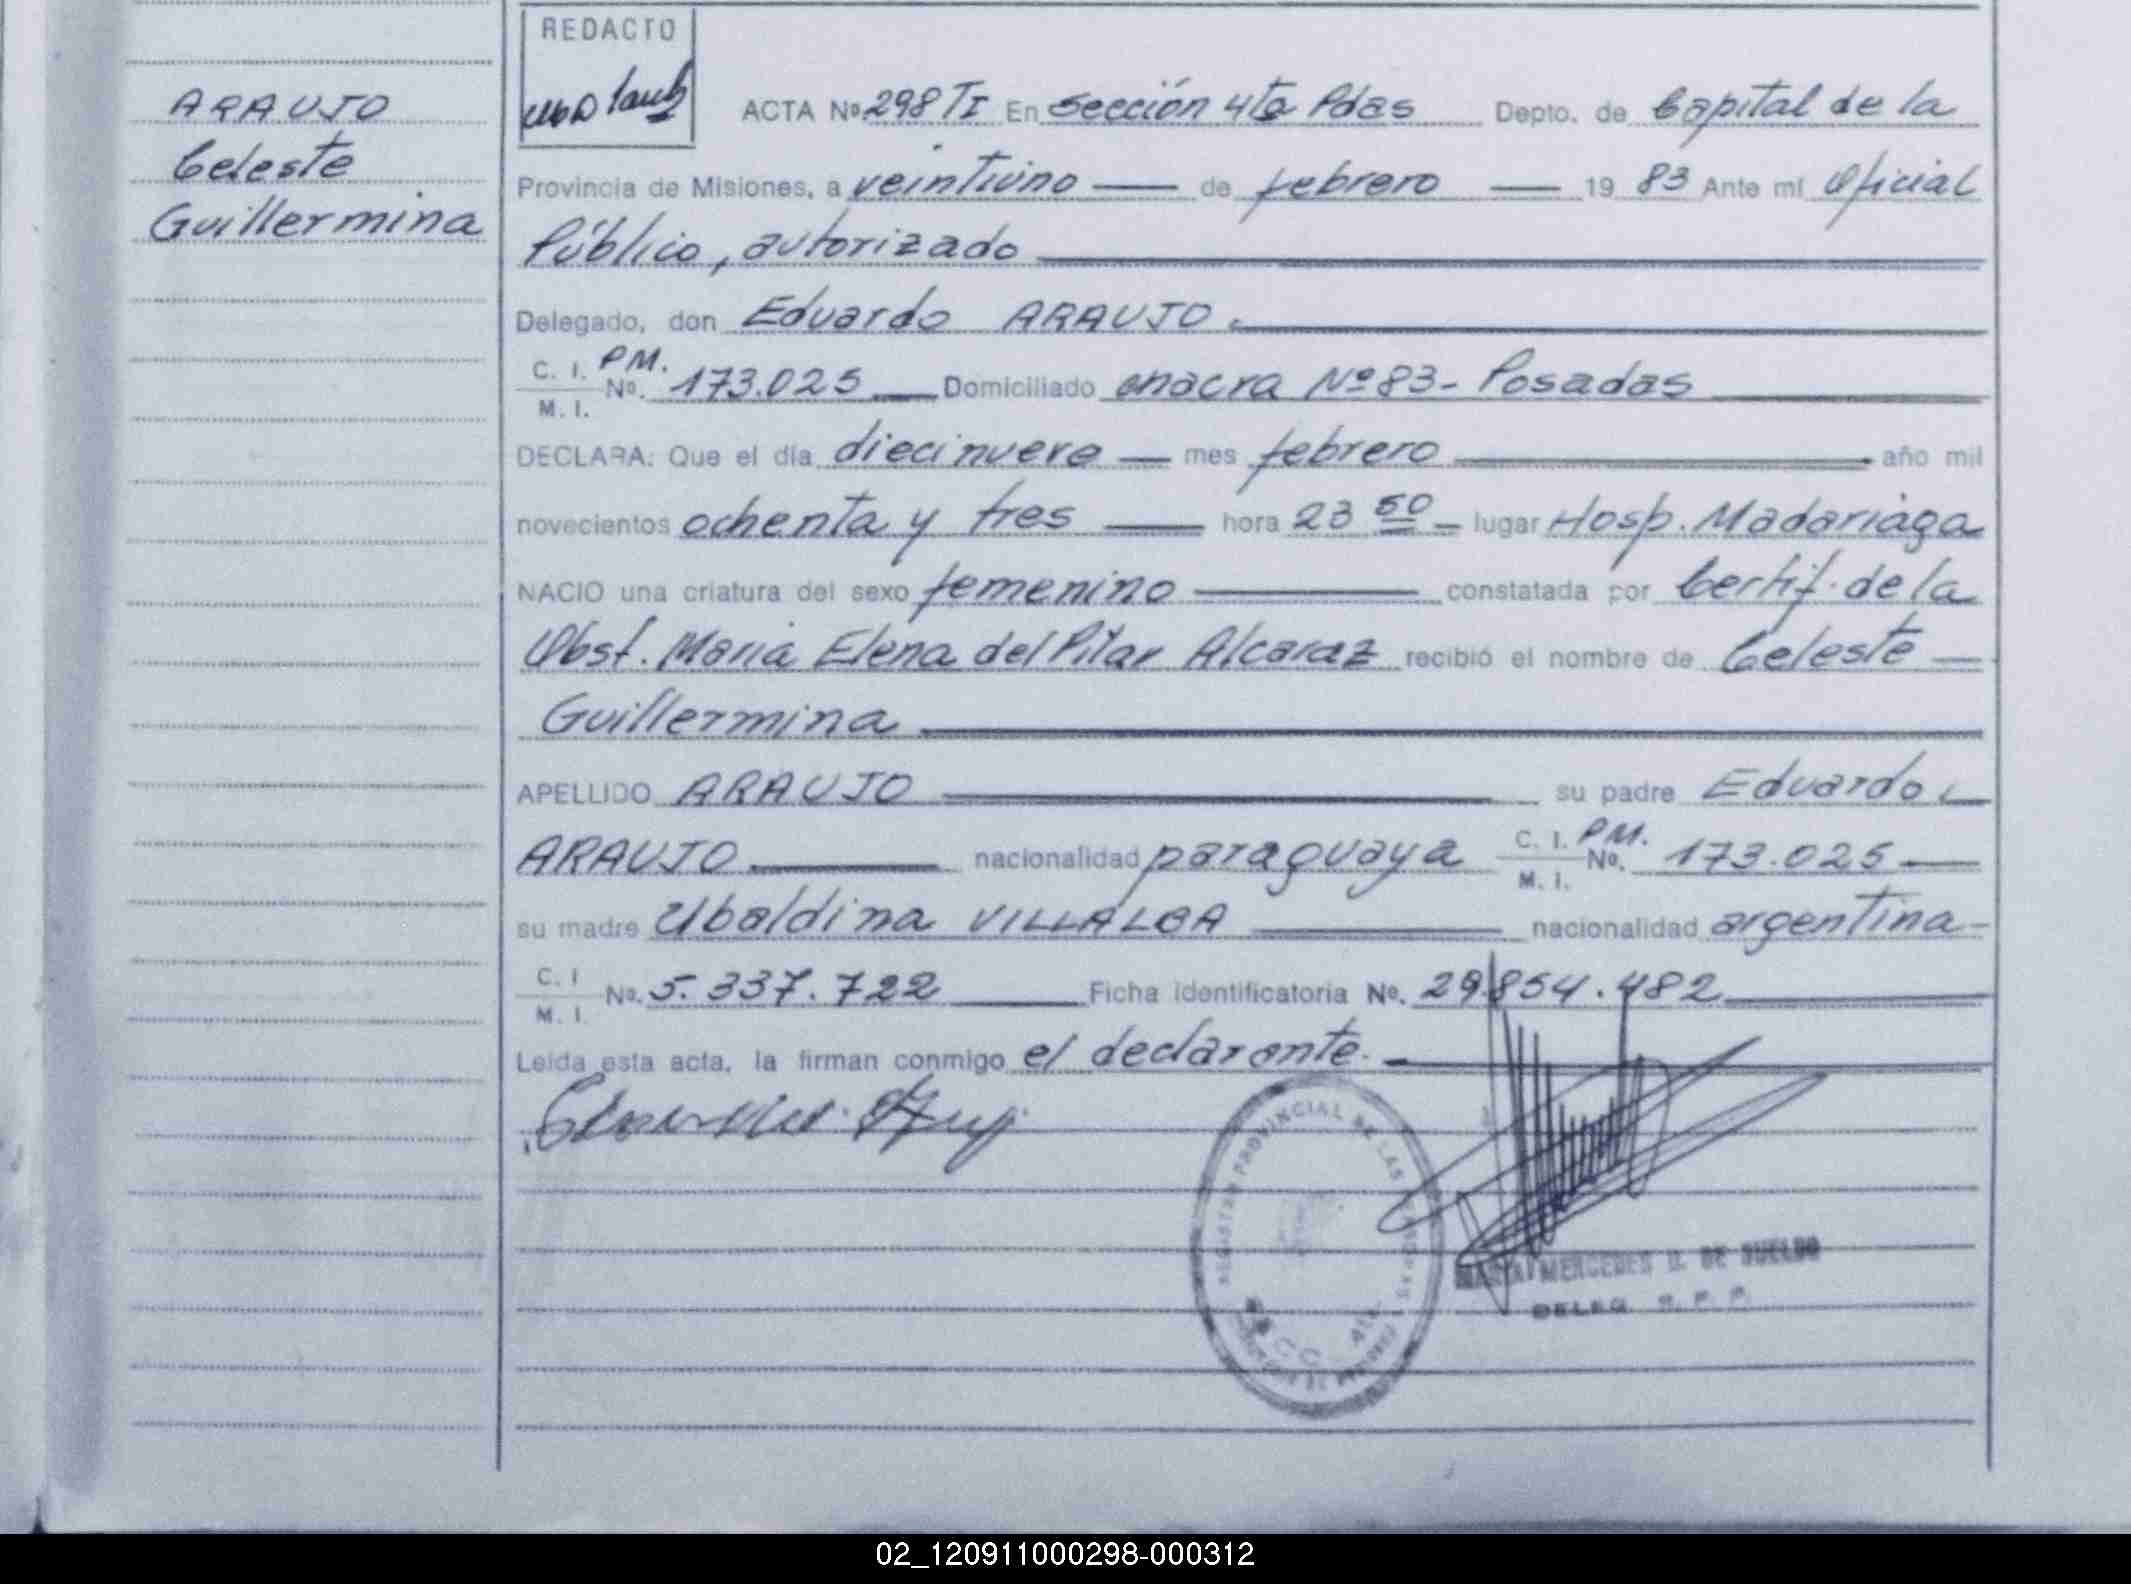 ARAUJO
Celeste
Guillermina
REDACTO
ACTA Nº 298 TI En Sección 4ta Pdas Depto. de Capital de la
Provincia de Misiones, a veintiuno de febrero 19 83 Ante mí Oficial
Público, autorizado
Delegado, don Eduardo ARAUJO.
C. I. PM.
M. I. Nº. 173.025 Domiciliado chacra Nº 83- Posadas
DECLARA: Que el día diecinueve mes febrero año mil
novecientos ochenta y tres hora 23 50 lugar Hosp. Madariaga
NACIO una criatura del sexo femenino constatada por Certif. de la
Obst. Maria Elena del Pilar Alcaraz recibió el nombre de Celeste
Guillermina
APELLIDO ARAUJO su padre Eduardo
ARAUJO nacionalidad paraguaya C. I. PM. M. I. Nº. 173.025
su madre Ubaldina VILLALBA nacionalidad argentina
C. I M. I. Nº. 5.337.722 Ficha identificatoria Nº. 29.854.482
Leída esta acta, la firman conmigo el declarante.
REGISTRO PROVINCIAL DE LAS PERSONAS
MARIA MERCEDES D. DE SUELDO
DELEG. R. P. P.
02_120911000298-000312